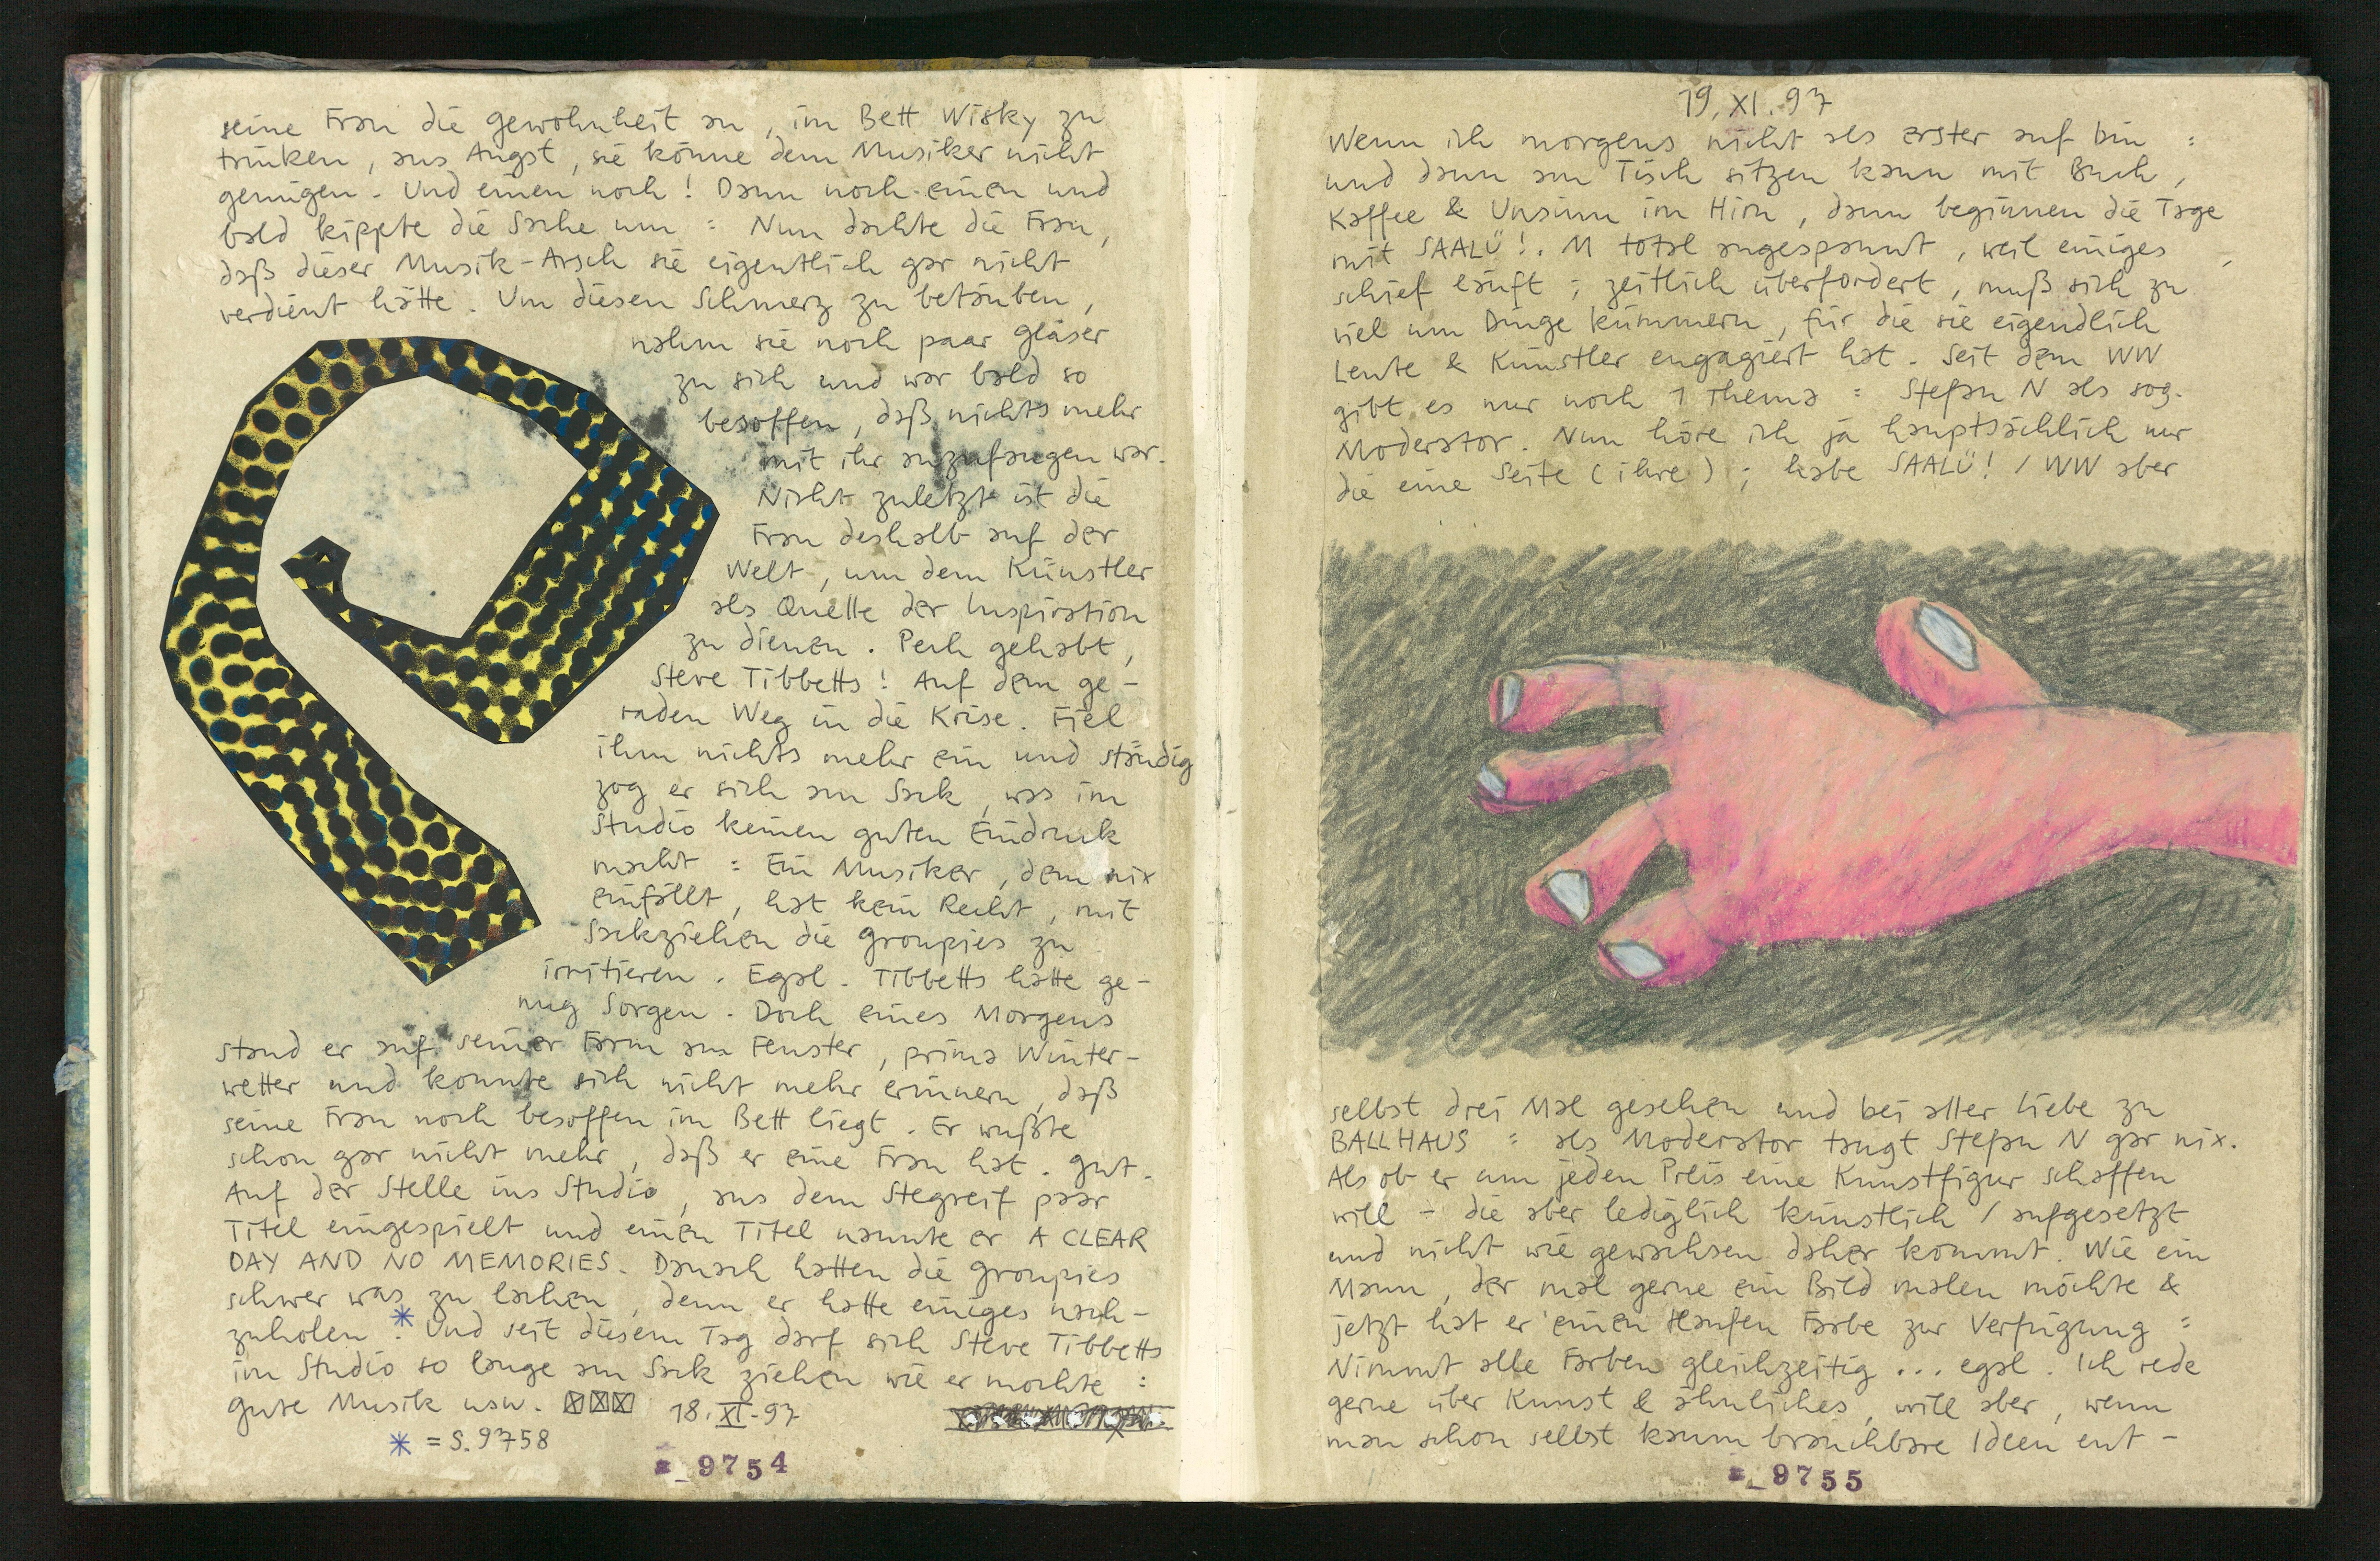 seine Frau die gewohnheit an, im Bett Wisky zu
trinken, aus Angst, sie könne dem Musiker nicht
genügen. Und einen noch! Dann noch einen und
bald kippte die Sache um : Nun dachte die Frau,
daß dieser Musik-Arsch sie eigentlich gar nicht
verdient hätte. Um diesen Schmerz zu betäuben,
nahm sie noch paar gläser
zu sich und war bald so
besoffen, daß nichts mehr
mit ihr anzufangen war.
Nicht zuletzt ist die
Frau deshalb auf der
Welt, um dem Künstler
als Quelle der Inspiration
zu dienen. Pech gehabt,
Steve Tibbetts! Auf dem ge-
raden Weg in die Krise. Fiel
ihm nichts mehr ein und ständig
zog er sich am Sack, was im
Studio keinen guten Eindruck
macht : Ein Musiker, dem nix
einfällt, hat kein Recht, mit
Sackziehen die groupies zu
irritieren. Egal. Tibbetts hatte ge-
nug Sorgen. Doch eines Morgens
stand er auf seiner Farm am Fenster, prima Winter-
wetter und konnte sich nicht mehr erinnern, daß
seine Frau noch besoffen im Bett liegt. Er wußte
schon gar nicht mehr, daß er eine Frau hat. gut.
Auf der Stelle ins Studio, aus dem Stegreif paar
Titel eingespielt und einen Titel nannte er A CLEAR
DAY AND NO MEMORIES. Danach hatten die groupies
schwer was zu lachen, denn er hatte einiges nach-
zuholen.* Und seit diesem Tag darf sich Steve Tibbetts
im Studio so lange am Sack ziehen wie er mochte :
gute Musik usw. ☒☒☒ 18. XI. 97
* = S. 9758
_ 9754
19. XI. 97
Wenn ich morgens nicht als erster auf bin :
und dann am Tisch sitzen kann mit Buch,
Kaffee & Unsinn im Hirn, dann beginnen die Tage
mit SAALÜ!. M total angespannt, weil einiges
schief läuft ; zeitlich überfordert, muß sich zu
viel um Dinge kümmern, für die sie eigendlich
Leute & Künstler engagiert hat. Seit dem WW
gibt es nur noch 1 Thema : Stefan N als sog.
Moderator. Nun höre ich ja hauptsächlich nur
die eine Seite (ihre) ; habe SAALÜ! / WW aber
selbst drei Mal gesehen und bei aller Liebe zu
BALLHAUS : als Moderator taugt Stefan N gar nix.
Als ob er um jeden Preis eine Kunstfigur schaffen
will - die aber lediglich künstlich / aufgesetzt
und nicht wie gewachsen daher kommt. Wie ein
Mann, der mal gerne ein Bild malen möchte &
jetzt hat er einen Haufen Farbe zur Verfügung :
Nimmt alle Farben gleichzeitig ... egal. Ich rede
gerne über Kunst & ähnliches, will aber, wenn
man schon selbst kaum brauchbare Ideen ent-
_ 9755